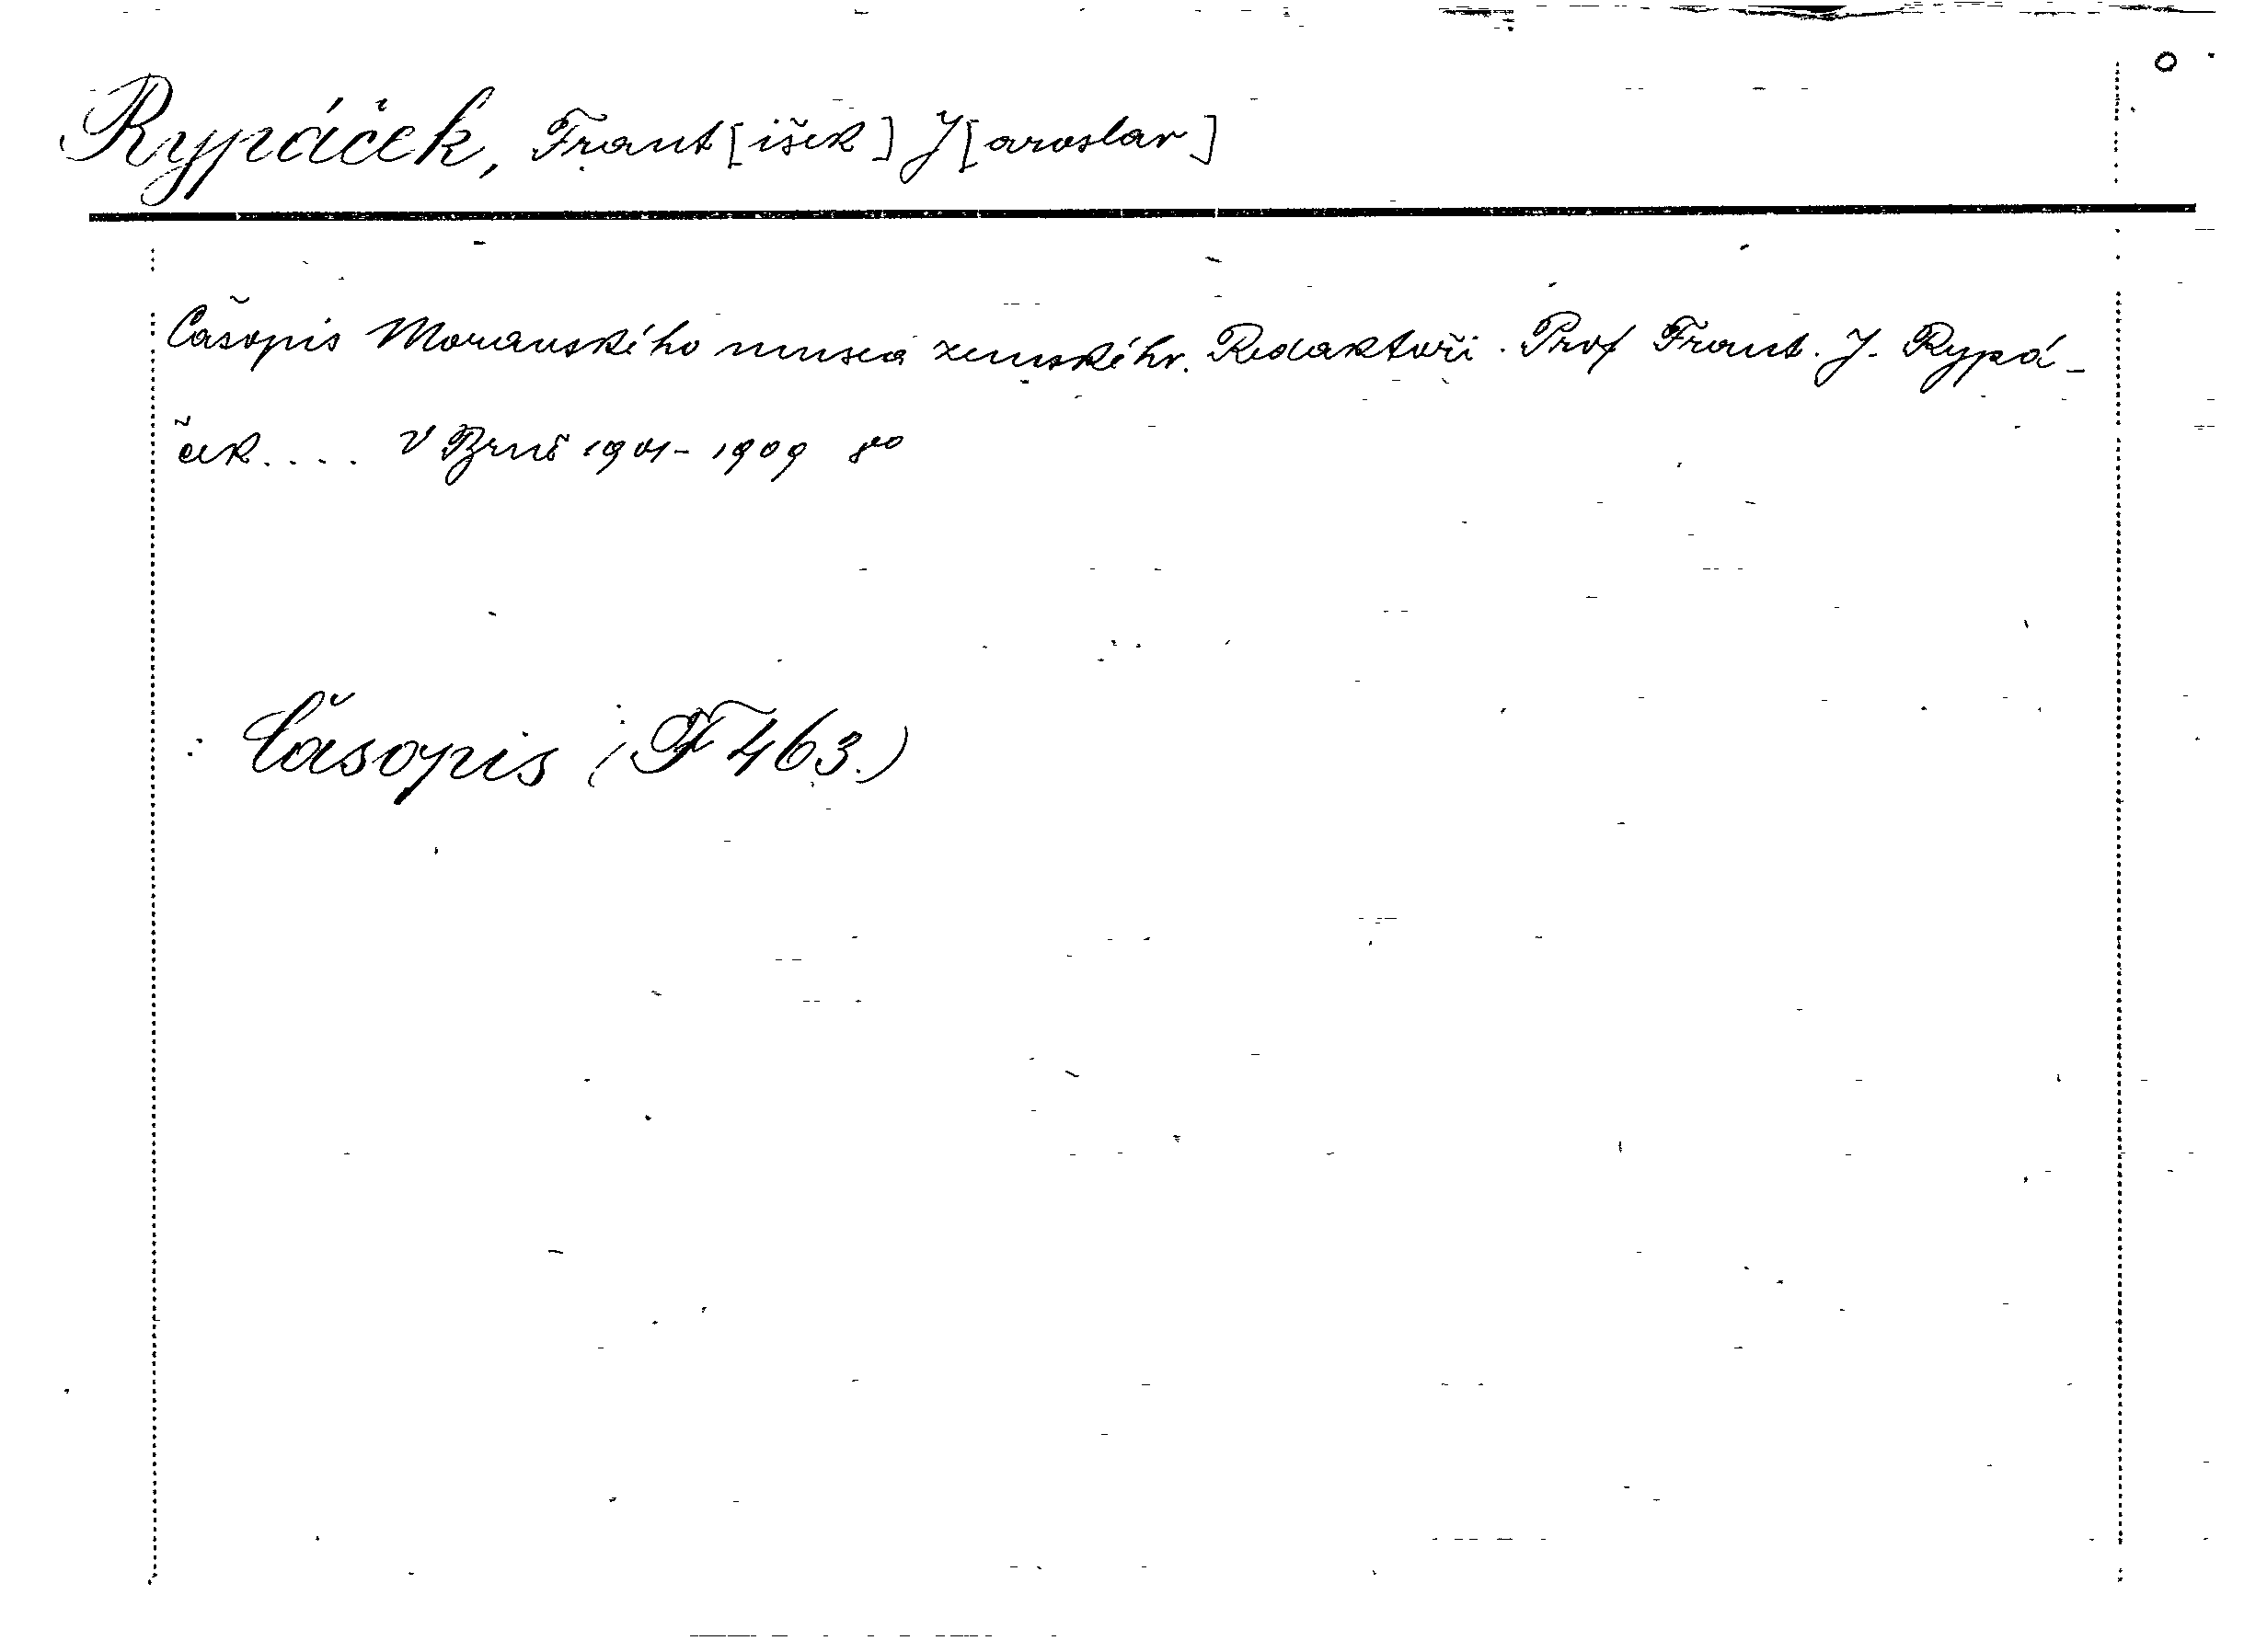 Rypáček, Frant[išek] J[aroslav]
Časopis Moravského musea zemského. Redaktoři. Prof Frant. J. Rypá-
ček.... V Brně 1901-1909 8o
Časopis (F 463.)